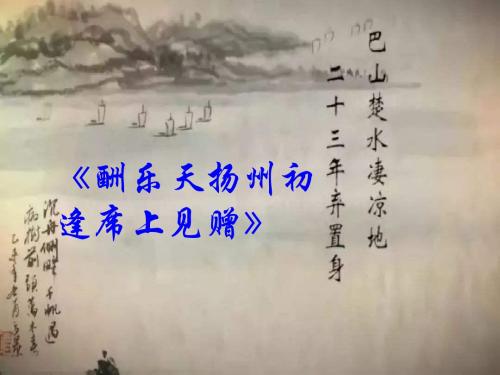 巴山楚水凄凉地
二十三年弃置身
《酬乐天扬州初
逢席上见赠》
沉舟侧畔千帆过
病树前头万木春